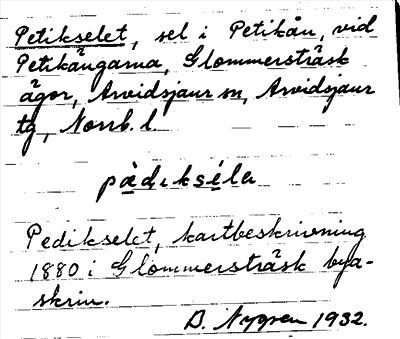 Petikselet, sel i Petikån, vid
Petikängarna, Glommersträsk
ägor, Arvidsjaur sn, Arvidsjaur
tg, Norrb. l.
pàdıkséla
Pedikselet, kartbeskrivning
1880 i Glommersträsk bya-
skrin.
B. Nygren 1932.